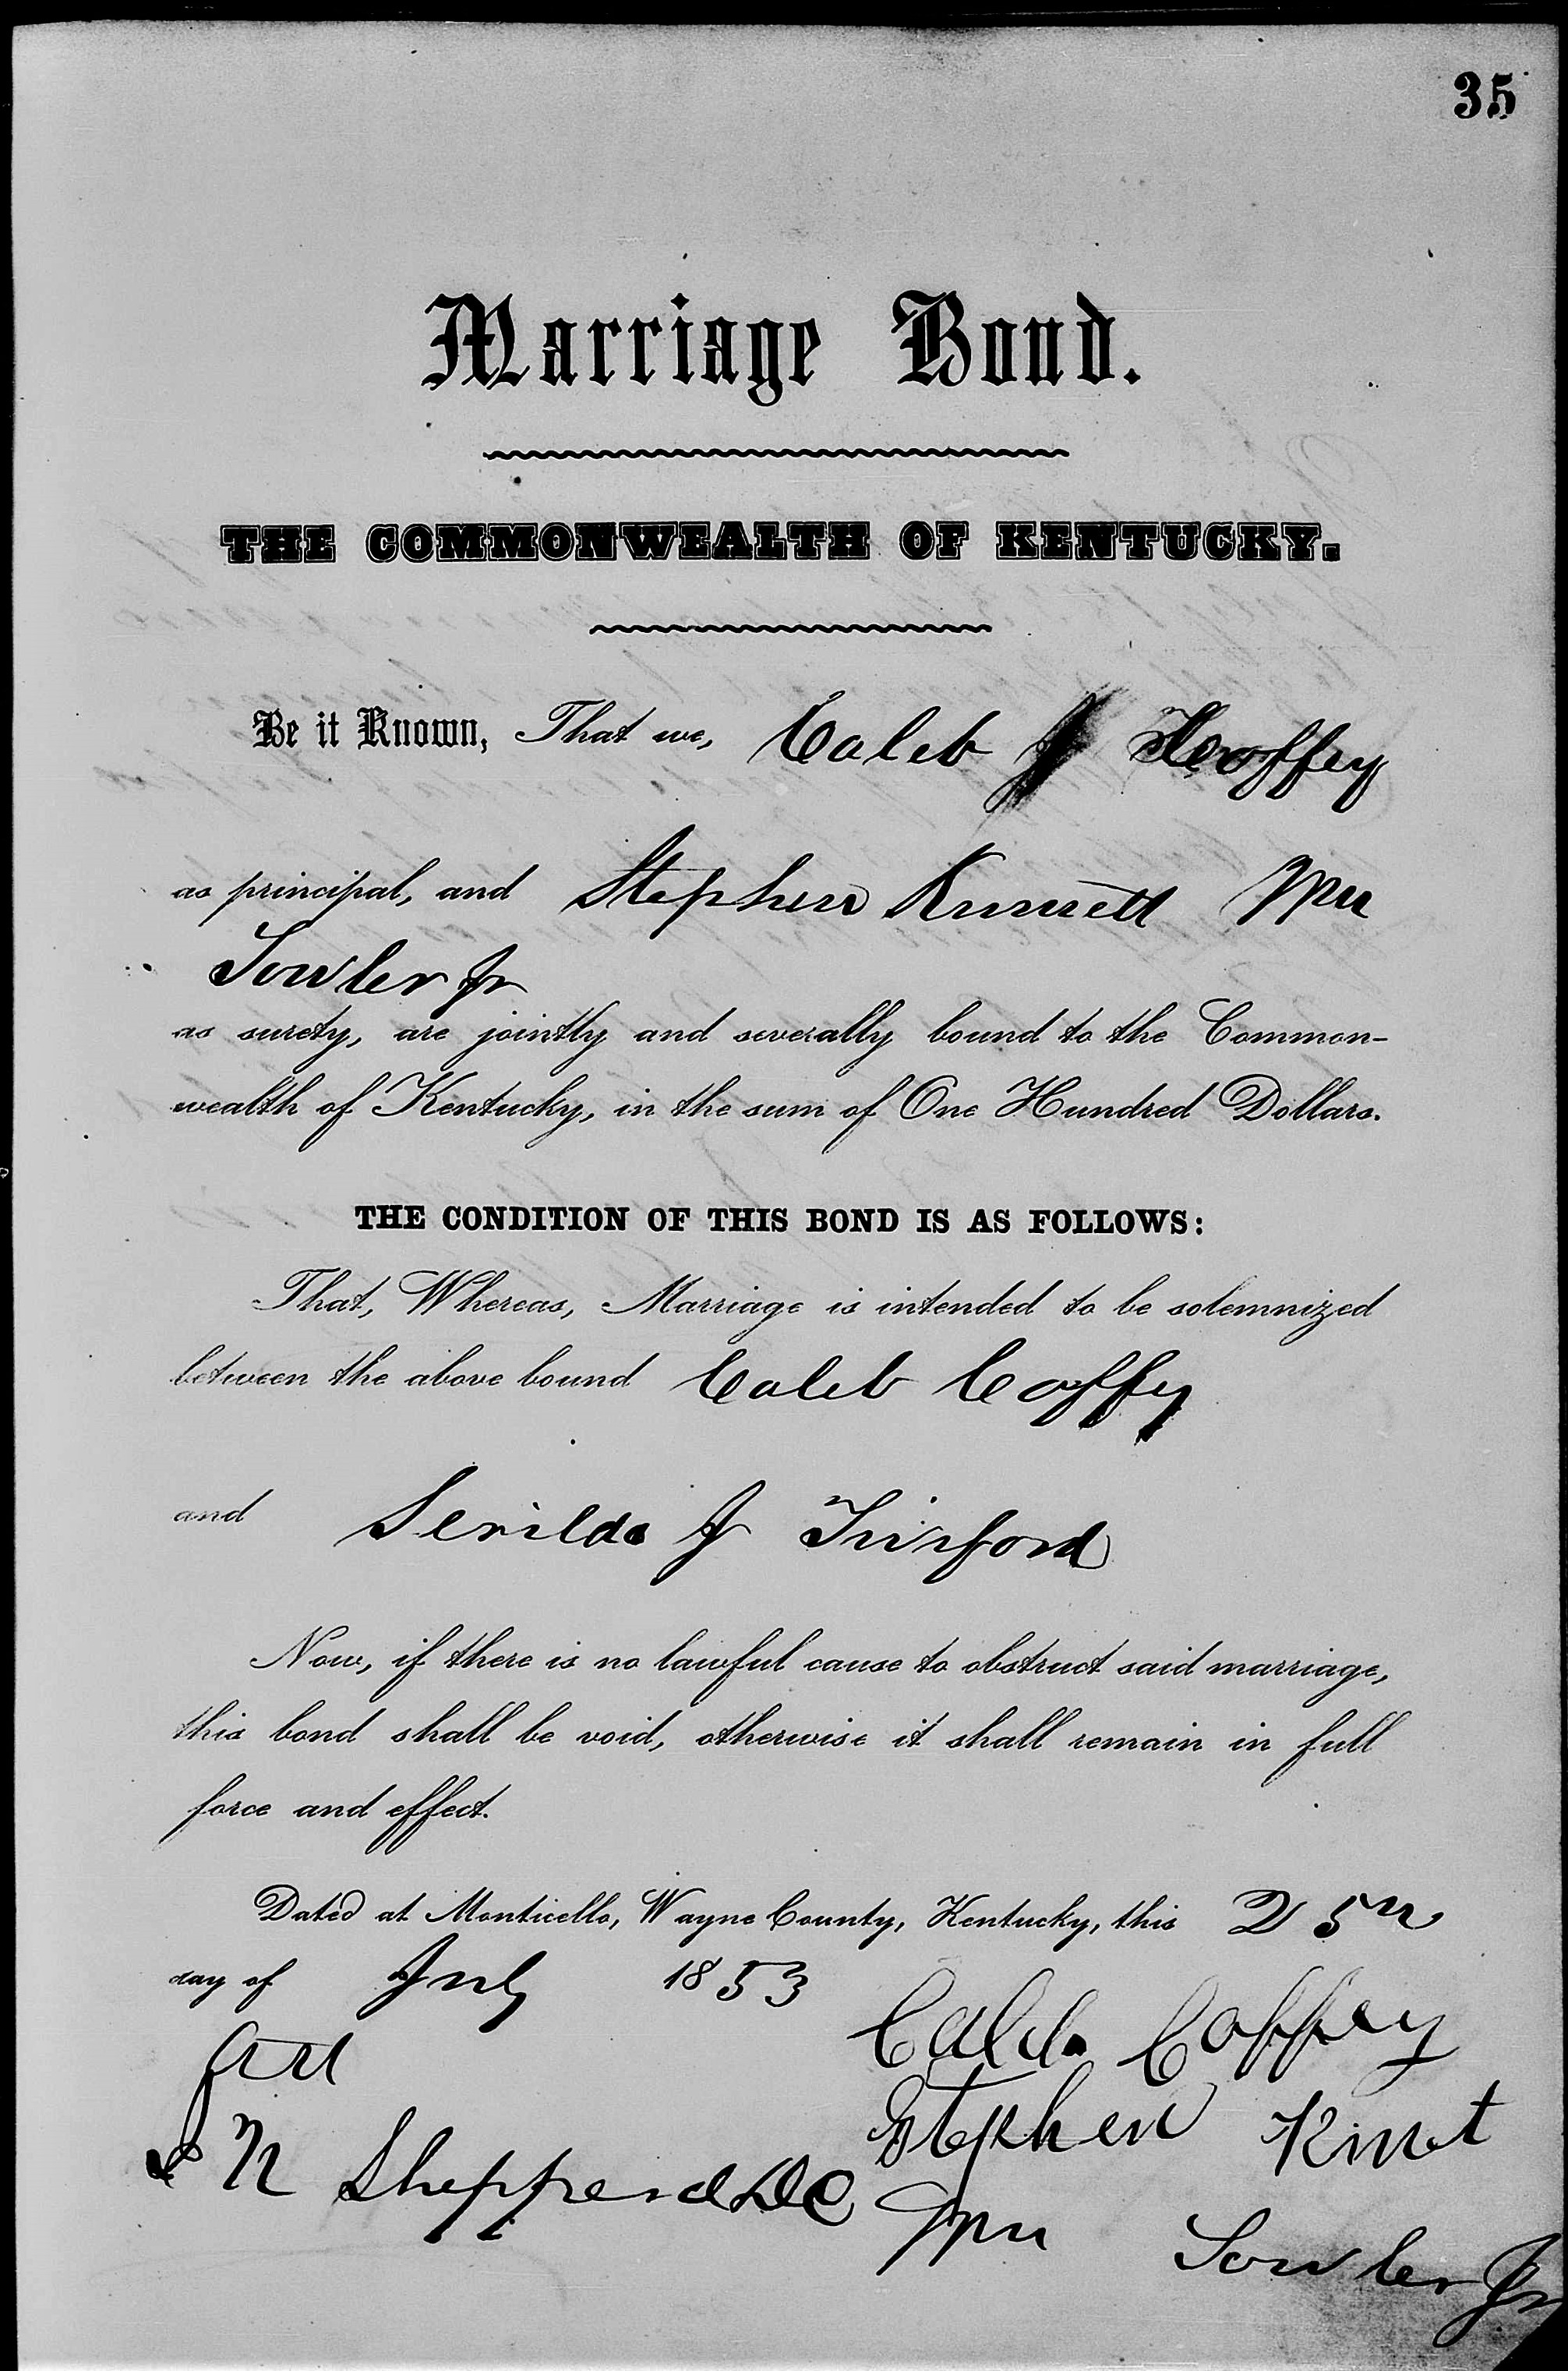 35
Marriage Bond.
THE COMMONWEALTH OF KENTUCKY.
Be it Known, That we, Caleb Coffey
as principal, and Stephen Wm
Sowler Jr
as surety, are jointly and severally bound to the Common-
wealth of Kentucky, in the sum of One Hundred Dollars.
THE CONDITION OF THIS BOND IS AS FOLLOWS:
That, Whereas, Marriage is intended to be solemnized
between the above bound Caleb Coffey
and Serilda J
Now, if there is no lawful cause to obstruct said marriage,
this bond shall be void, otherwise it shall remain in full
force and effect.
Dated at Monticello, Wayne County, Kentucky, this 25th
day of July 1853
Caleb Coffey
Att
Stephen
N Shepperd DC
Wm Sowler Jr